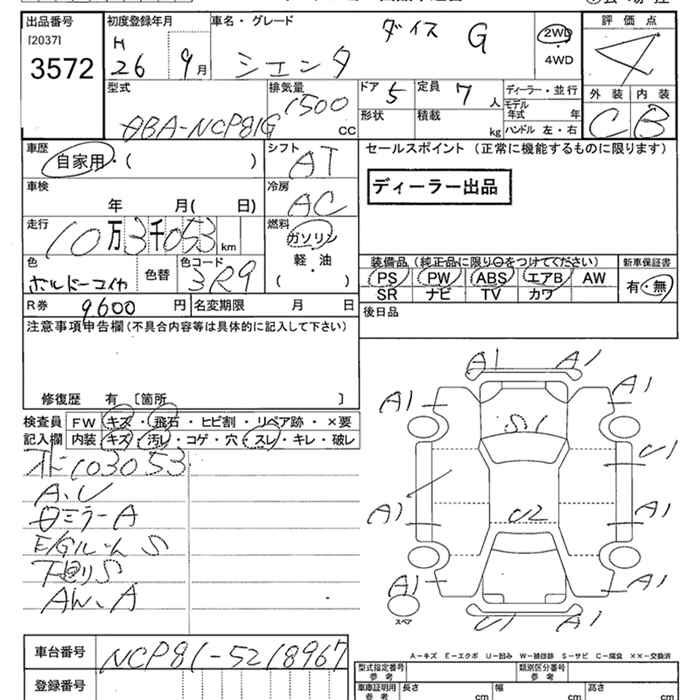 出品番号 初度登録年月 車名・グレード 評価点
[2037] H ダイス G 2WD
3572 26 9月 シエンタ ・4WD 4
型式 排気量 ドア 5 定員 7人 ディーラー・並行 外装 内装
ABA-NCP81G 1500 cc 形状 積載 kg モデル年式 年 C B
ハンドル 左・右
車歴 シフト セールスポイント(正常に機能するものに限ります)
自家用・( ) AT
車検 冷房 ディーラー出品
年 月( 日) AC
走行 燃料
10万3千053km ガソリン
色 色替 色コード 軽・油 装備品(純正品に限り○をつけてください) 新車保証書
ボルドーマイカ 3R9 ( ) PS PW ABS エアB AW 有・無
SR ナビ TV カワ
R券 9600円 名変期限 月 日 後日品
注意事項申告欄(不具合内容等は具体的に記入して下さい)
修復歴 有 〔箇所 〕
検査員 FW キズ・飛石・ヒビ割・リペア跡・×要
記入欄 内装 キズ・汚レ・コゲ・穴・スレ・キレ・破レ
103053
A、U
ミラーA
E/GルームS
下回りS
AW、A
A1 A1
A1 A1
S1
U1
A1 U2 A1
A1 A1
スペア
U1 A1
A-キズ E-エクボ U-凹み W-補修跡 S-サビ C-腐食 ××-交換済
車台番号 NCP81-5218967
登録番号
型式指定番号 参考 類別区分番号 参考
車庫証明用 参考 長さ cm 幅 cm 高さ cm